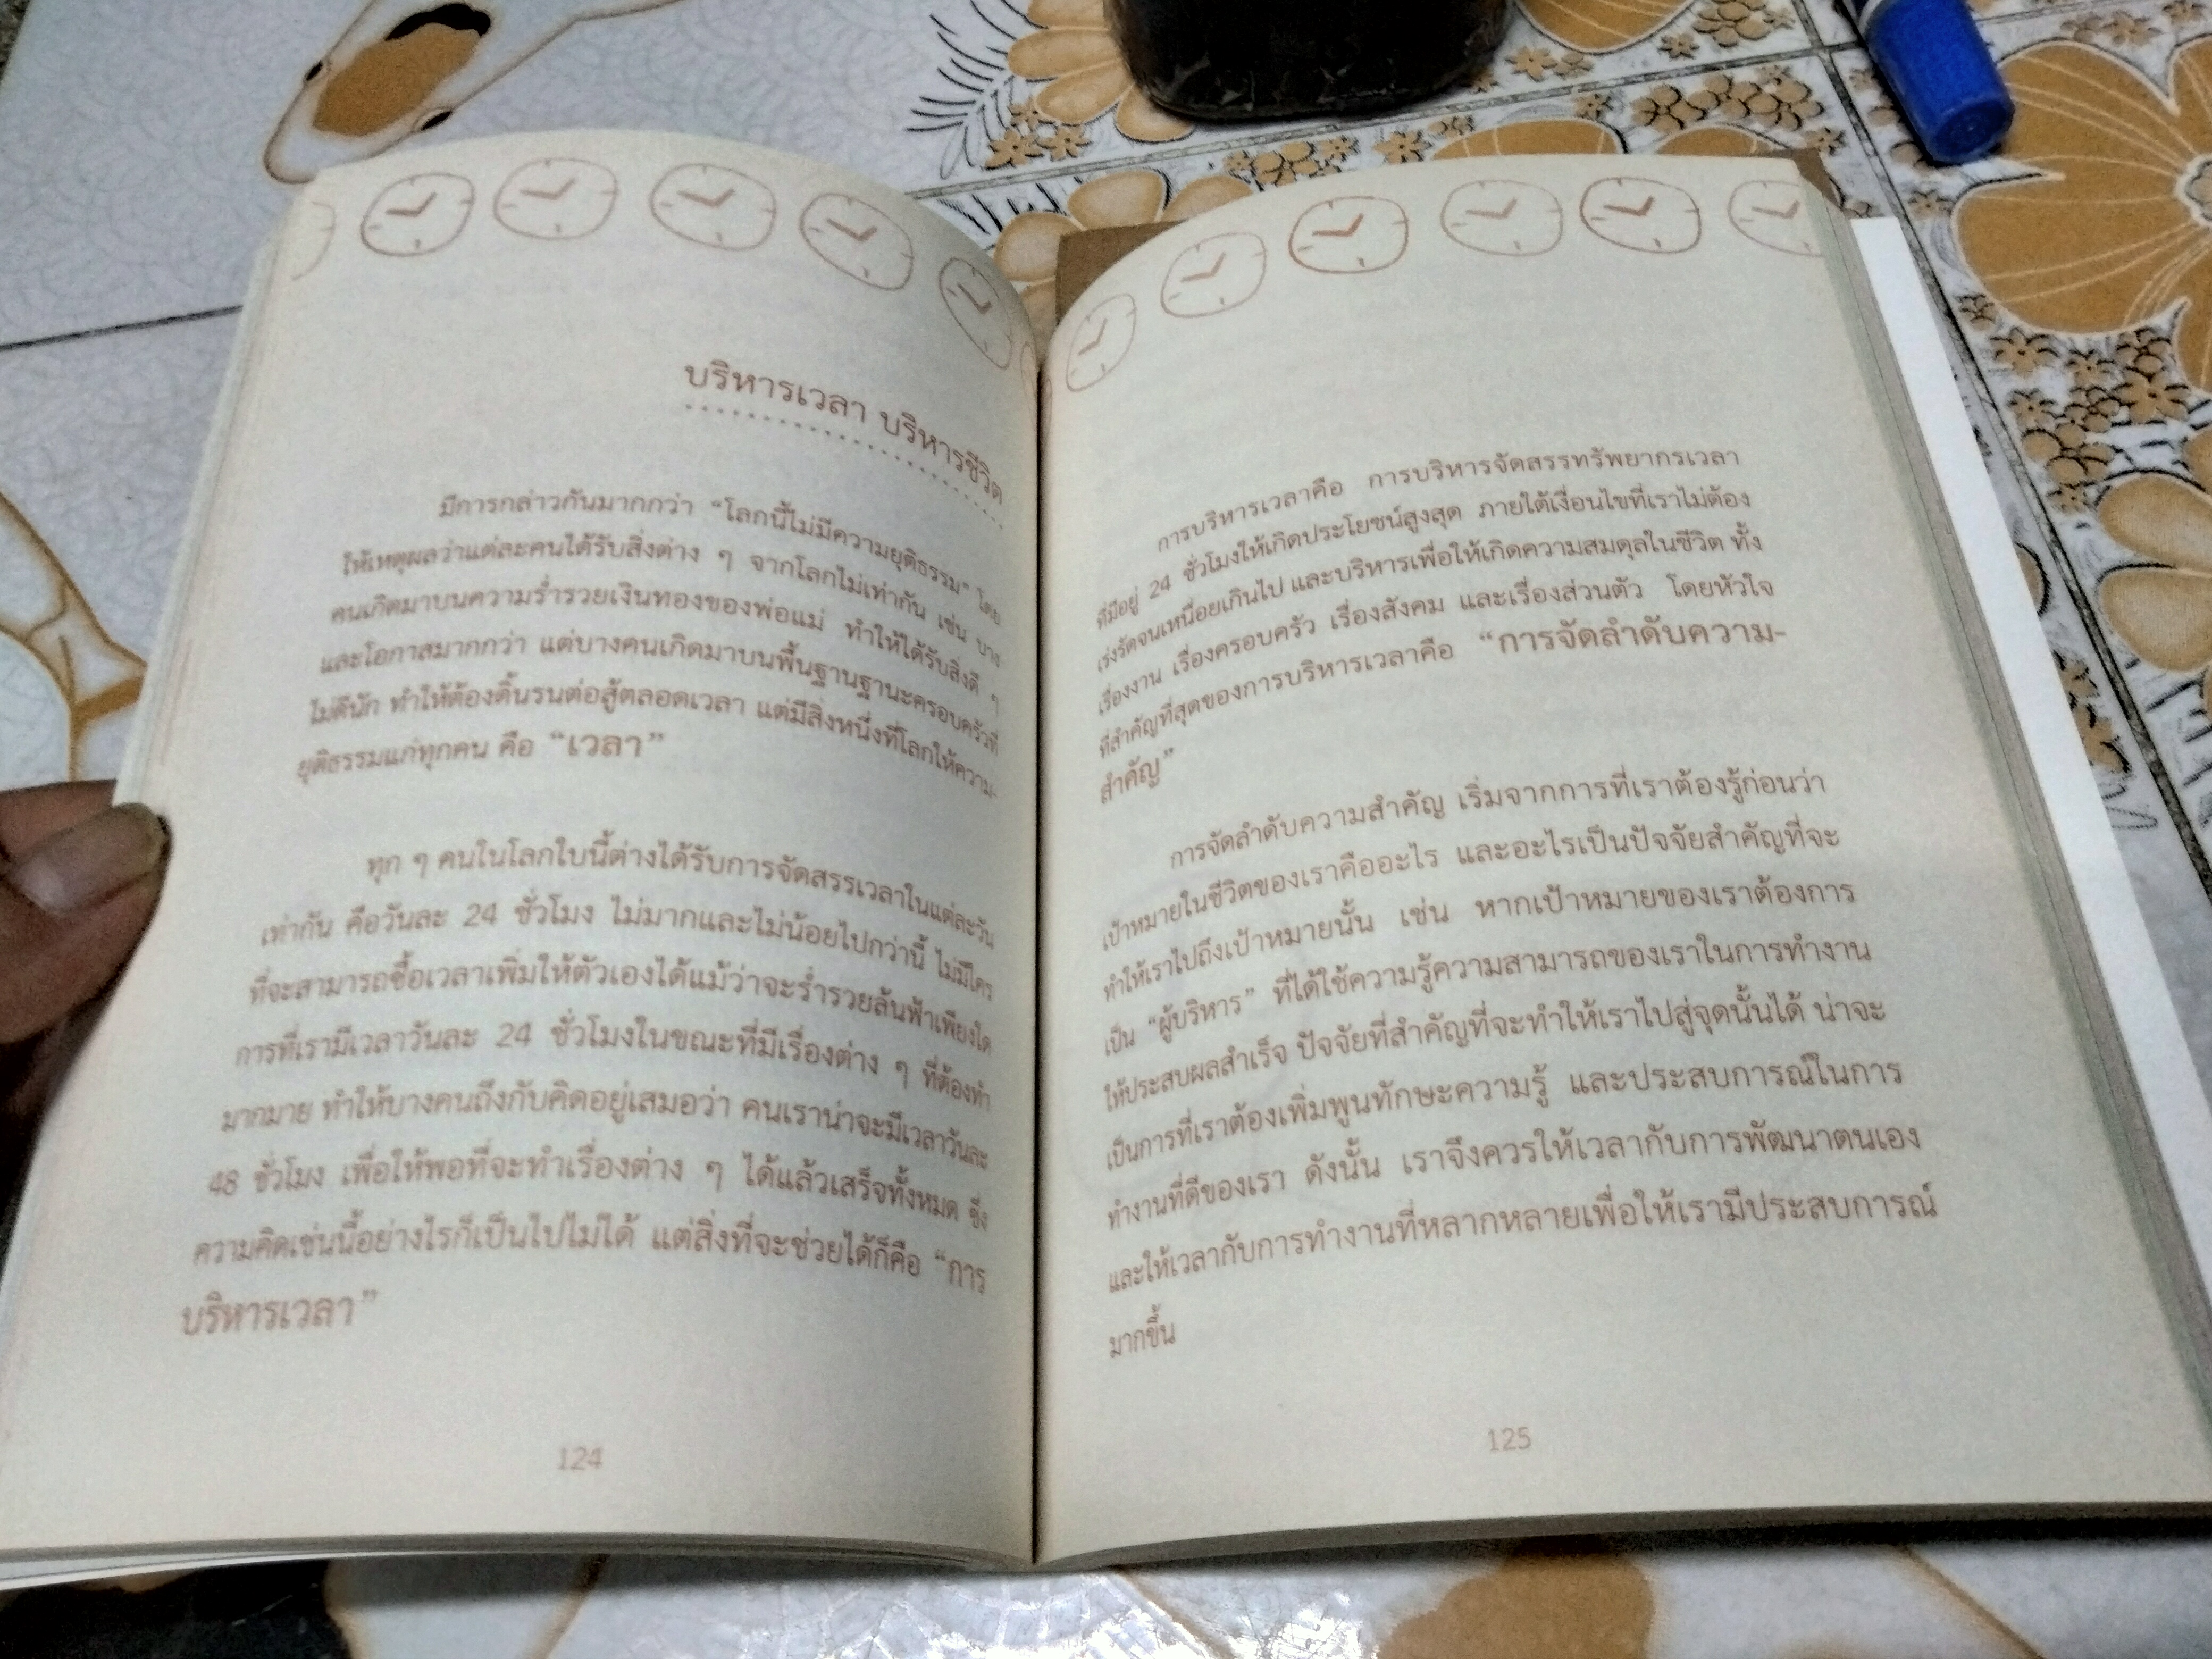 บริหารเวลา บริหารชีวิต
มีการกล่าวกันมากกว่า “โลกนี้ไม่มีความยุติธรรม” โดย
ให้เหตุผลว่าแต่ละคนได้รับสิ่งต่าง ๆ จากโลกไม่เท่ากัน เช่น บาง
คนเกิดมาบนความร่ำรวยเงินทองของพ่อแม่ ทำให้ได้รับสิ่งดี ๆ
และโอกาสมากกว่า แต่บางคนเกิดมาบนพื้นฐานฐานะครอบครัวที่
ไม่ดีนัก ทำให้ต้องดิ้นรนต่อสู้ตลอดเวลา แต่มีสิ่งหนึ่งที่โลกให้ความ-
ยุติธรรมแก่ทุกคน คือ “เวลา”
ทุก ๆ คนในโลกใบนี้ต่างได้รับการจัดสรรเวลาในแต่ละวัน
เท่ากัน คือวันละ 24 ชั่วโมง ไม่มากและไม่น้อยไปกว่านี้ ไม่มีใคร
ที่จะสามารถซื้อเวลาเพิ่มให้ตัวเองได้แม้ว่าจะร่ำรวยล้นฟ้าเพียงใด
การที่เรามีเวลาวันละ 24 ชั่วโมงในขณะที่มีเรื่องต่าง ๆ ที่ต้องทำ
มากมาย ทำให้บางคนถึงกับคิดอยู่เสมอว่า คนเราน่าจะมีเวลาวันละ
48 ชั่วโมง เพื่อให้พอที่จะทำเรื่องต่าง ๆ ได้แล้วเสร็จทั้งหมด ซึ่ง
ความคิดเช่นนี้อย่างไรก็เป็นไปไม่ได้ แต่สิ่งที่จะช่วยได้ก็คือ “การ
บริหารเวลา”
124
การบริหารเวลาคือ การบริหารจัดสรรทรัพยากรเวลา
ที่มีอยู่ 24 ชั่วโมงให้เกิดประโยชน์สูงสุด ภายใต้เงื่อนไขที่เราไม่ต้อง
เร่งรัดจนเหนื่อยเกินไป และบริหารเพื่อให้เกิดความสมดุลในชีวิต ทั้ง
เรื่องงาน เรื่องครอบครัว เรื่องสังคม และเรื่องส่วนตัว โดยหัวใจ
ที่สำคัญที่สุดของการบริหารเวลาคือ “การจัดลำดับความ-
สำคัญ”
การจัดลำดับความสำคัญ เริ่มจากการที่เราต้องรู้ก่อนว่า
เป้าหมายในชีวิตของเราคืออะไร และอะไรเป็นปัจจัยสำคัญที่จะ
ทำให้เราไปถึงเป้าหมายนั้น เช่น หากเป้าหมายของเราต้องการ
เป็น “ผู้บริหาร” ที่ได้ใช้ความรู้ความสามารถของเราในการทำงาน
ให้ประสบผลสำเร็จ ปัจจัยที่สำคัญที่จะทำให้เราไปสู่จุดนั้นได้ น่าจะ
เป็นการที่เราต้องเพิ่มพูนทักษะความรู้ และประสบการณ์ในการ
ทำงานที่ดีของเรา ดังนั้น เราจึงควรให้เวลากับการพัฒนาตนเอง
และให้เวลากับการทำงานที่หลากหลายเพื่อให้เรามีประสบการณ์
มากขึ้น
125